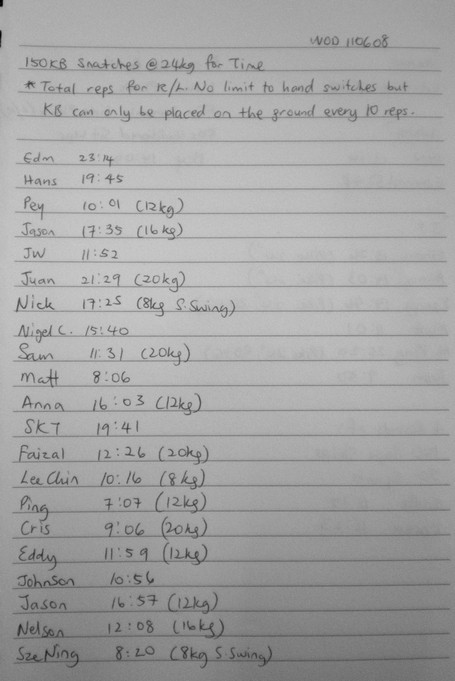 WOD 110608
150KB Snatches @ 24kg for Time
* Total reps for R/L. No limit to hand switches but
KB can only be placed on the ground every 10 reps.
Edm 23:14
Hans 19:45
Pey 10:01 (12kg)
Jason 17:35 (16kg)
JW 11:52
Juan 21:29 (20kg)
Nick 17:25 (8kg S.Swing)
Nigel C. 15:40
Sam 11:31 (20kg)
Matt 8:06
Anna 16:03 (12kg)
SKT 19:41
Faizal 12:26 (20kg)
Lee Chin 10:16 (8kg)
Ping 7:07 (12kg)
Cris 9:06 (20kg)
Eddy 11:59 (12kg)
Johnson 10:56
Jason 16:57 (12kg)
Nelson 12:08 (16kg)
Sze Ning 8:20 (8kg S.Swing)